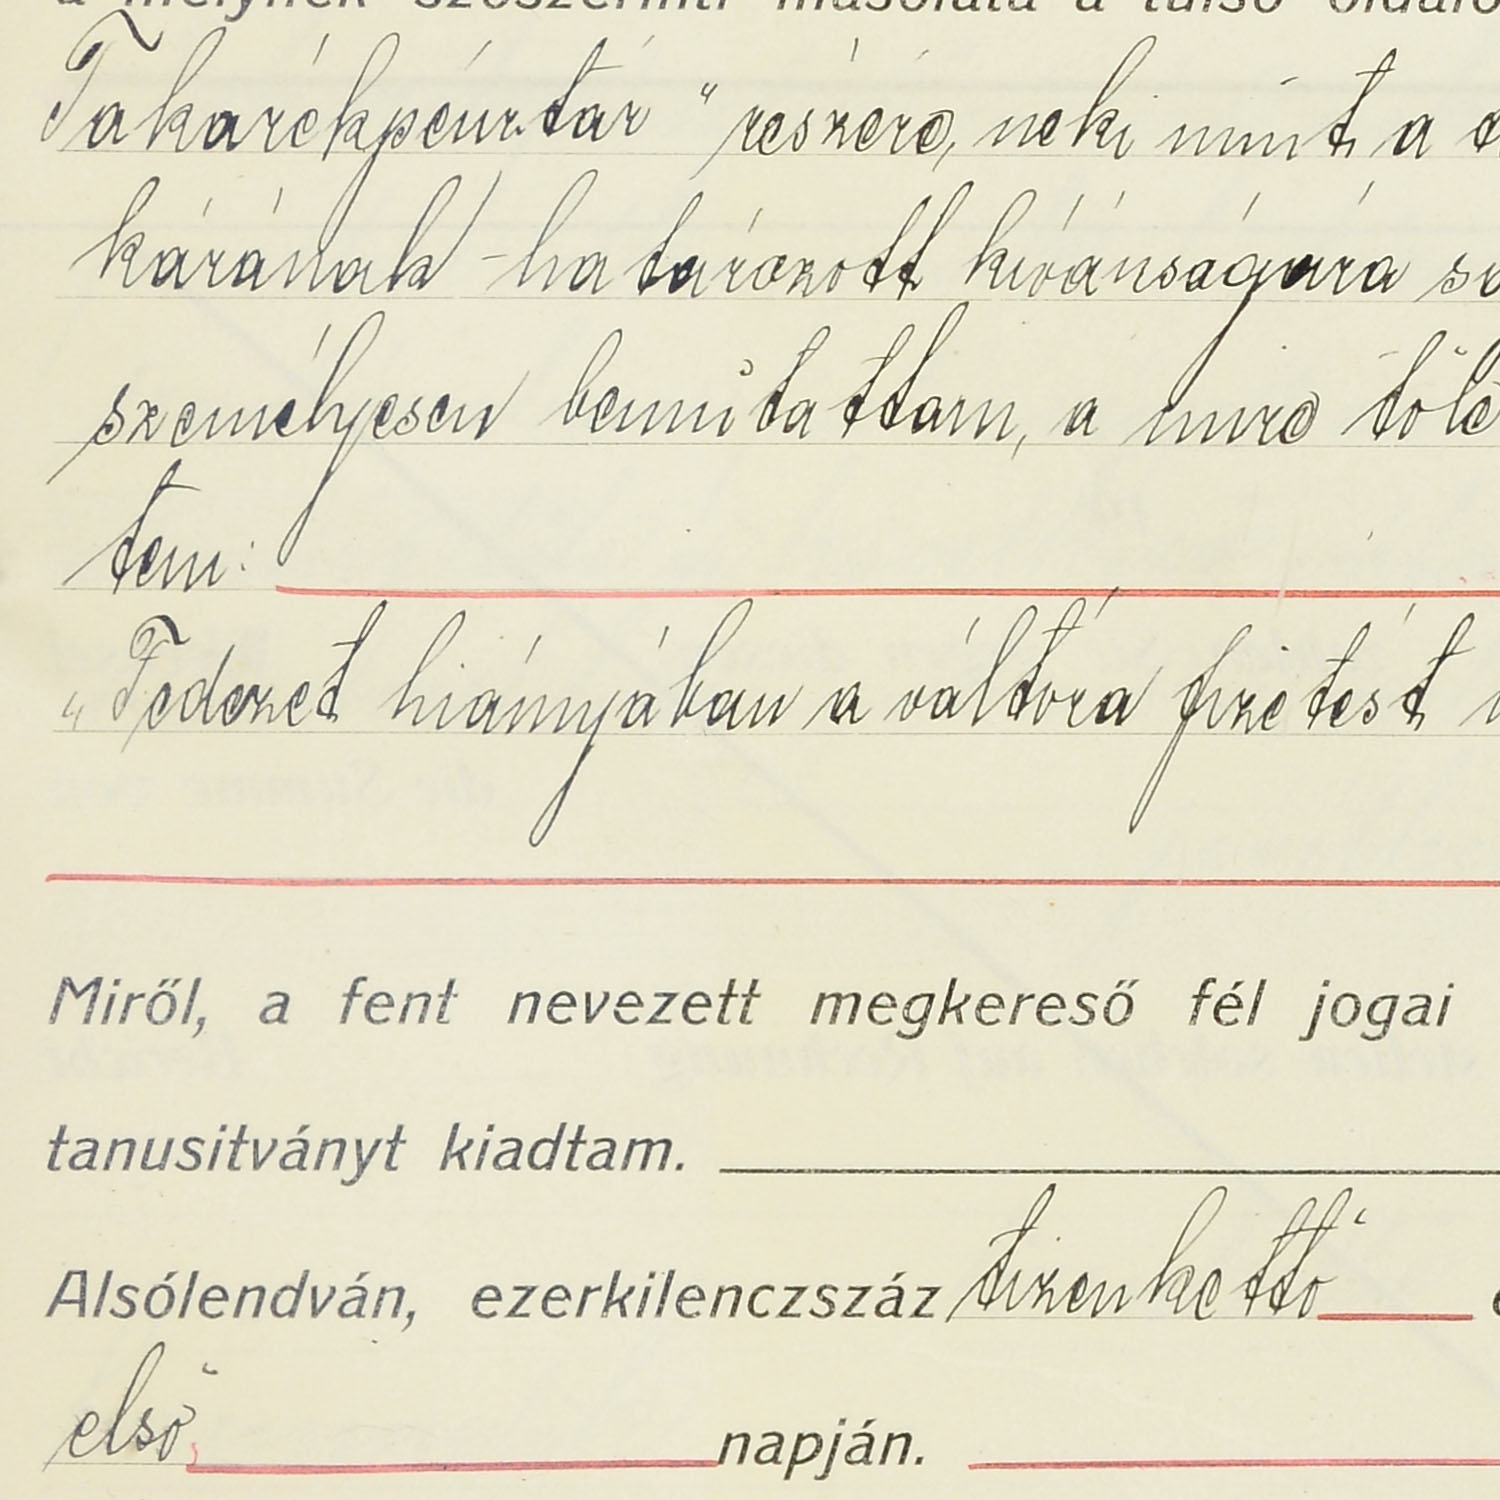 a melynek szószerinti másolata a tulsó oldalo
Takarékpénztár" részére, neki mint a
kárának - határozott kívánságára
személyesen bemutattam, a mire tőle
tem:
„Fedezet hiányjában a váltóra fizetést
Miről, a fent nevezett megkereső fél jogai
tanusitványt kiadtam.
Alsólendván, ezerkilenczszáz tizenkettő
első napján.